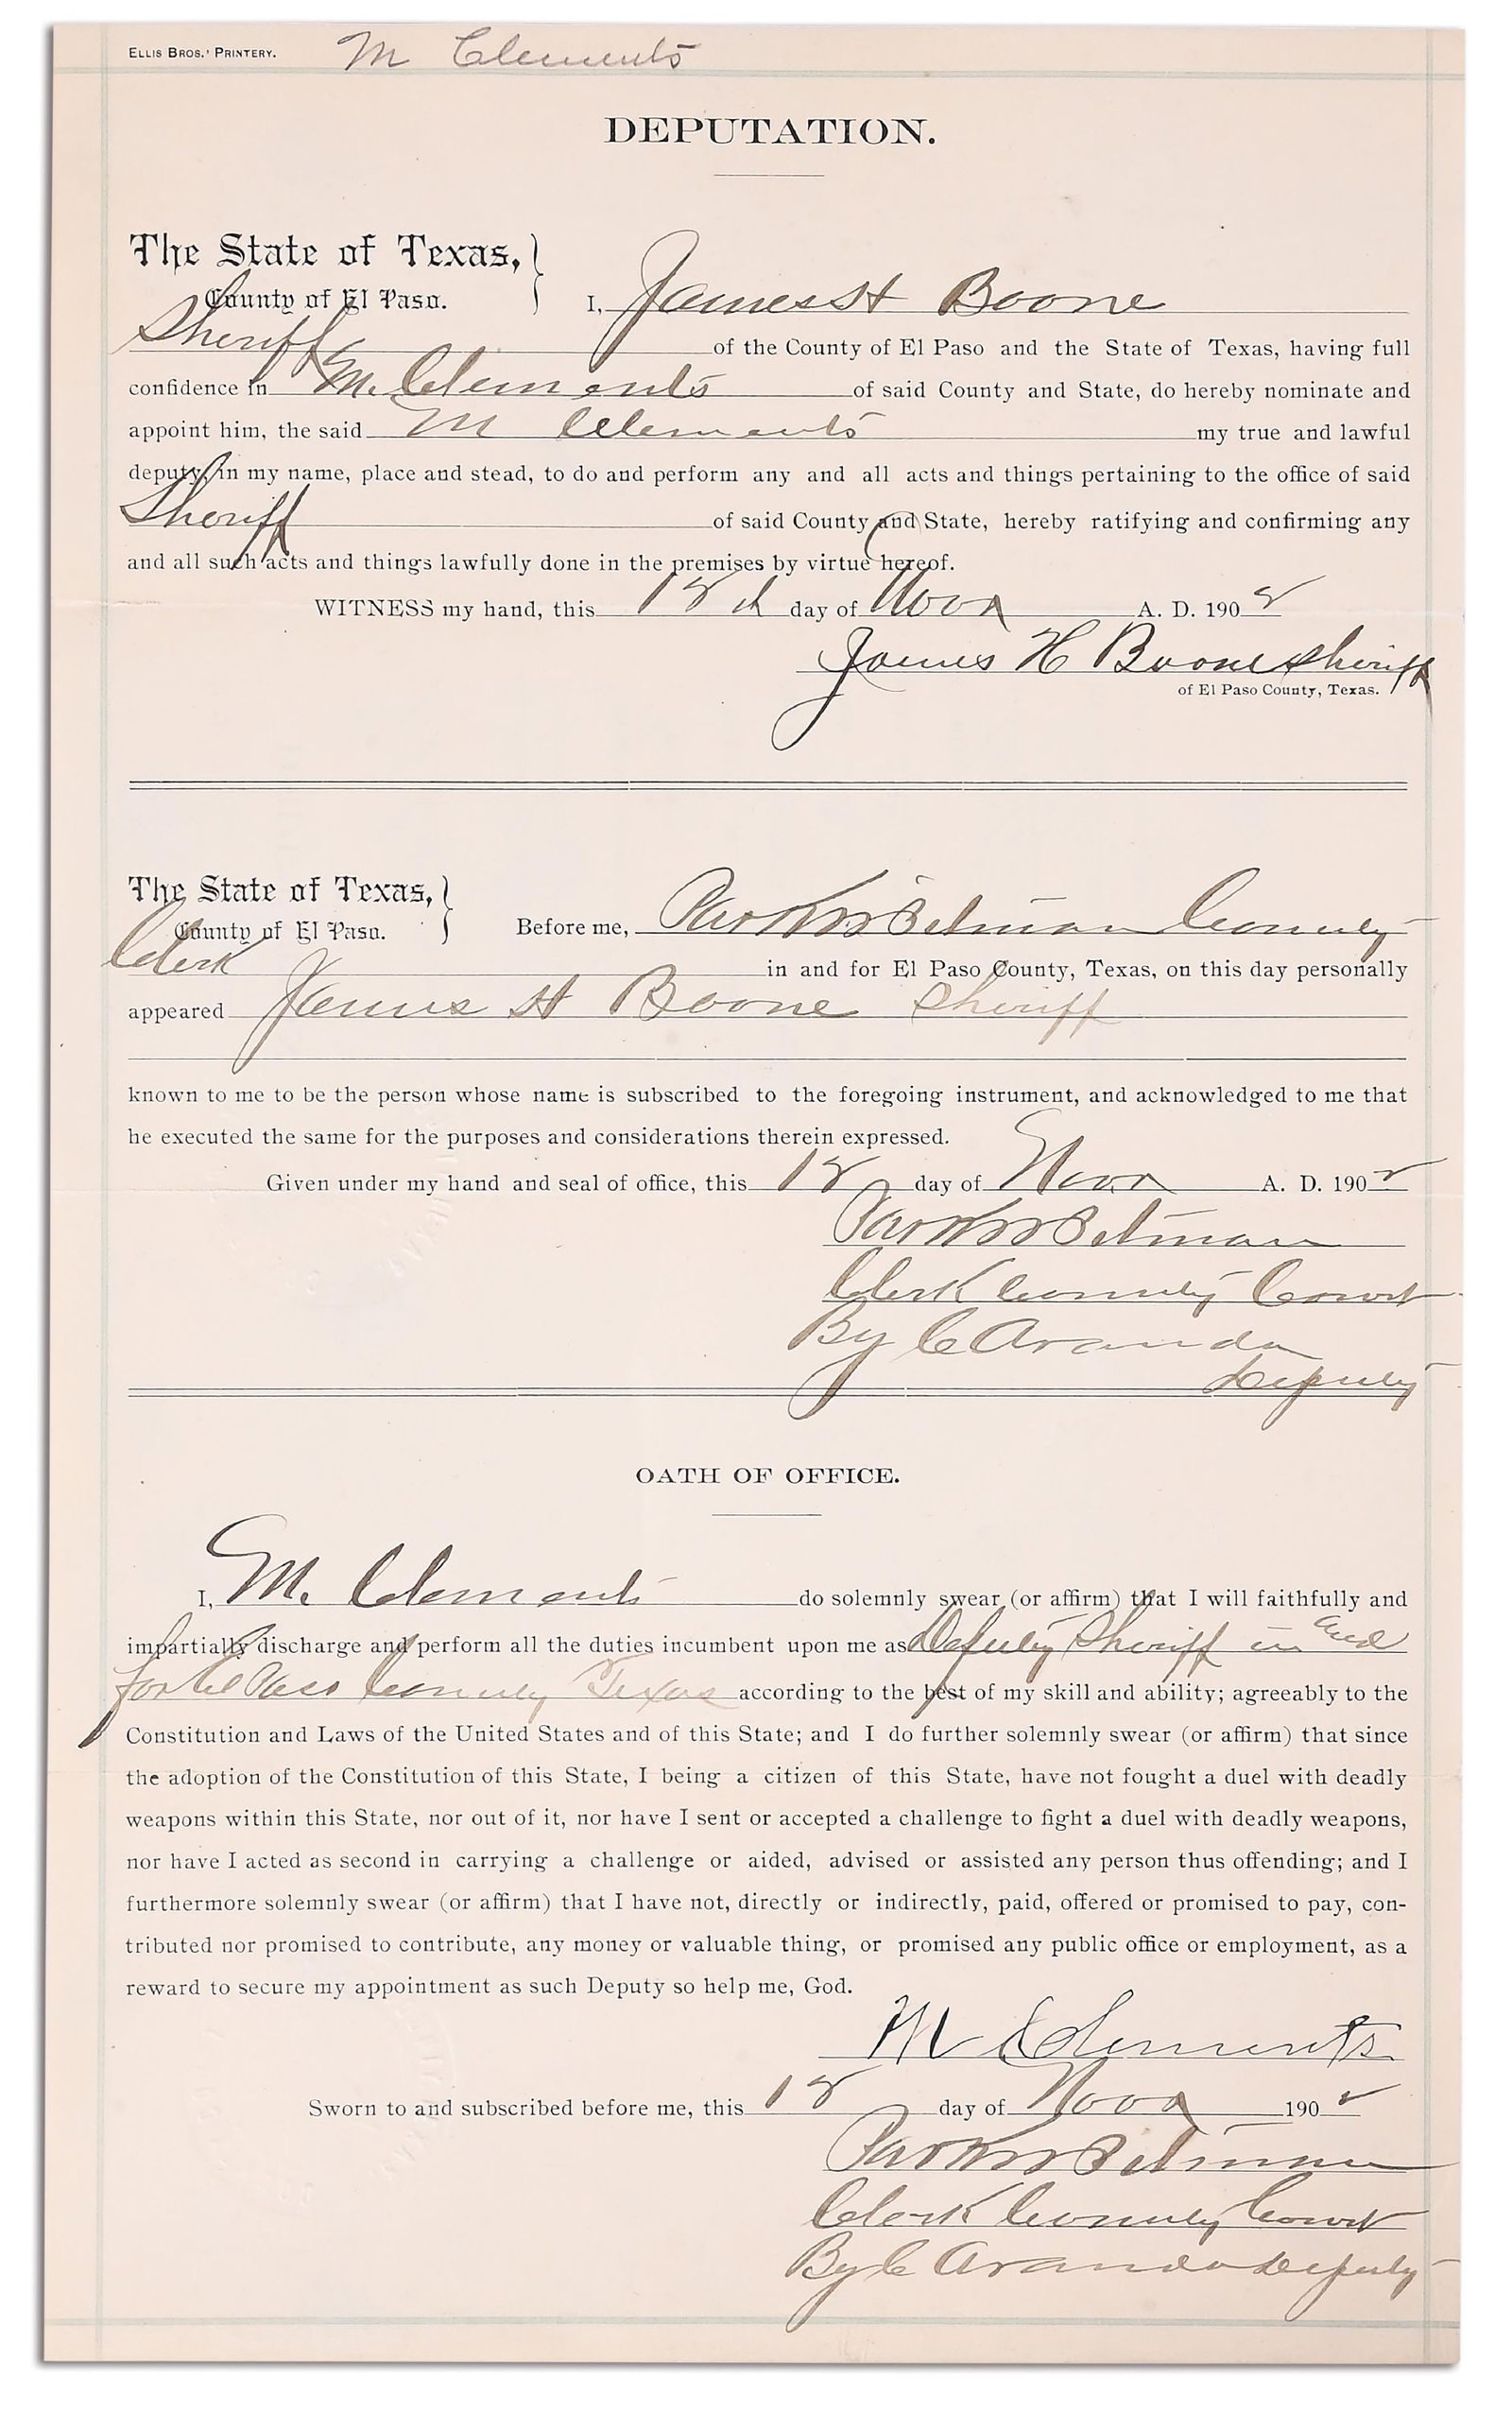 ELLIS BROS.' PRINTERY. M Clements
DEPUTATION.
The State of Texas,
County of El Paso. I, James H Boone
Sheriff of the County of El Paso and the State of Texas, having full
confidence in M. Clements of said County and State, do hereby nominate and
appoint him, the said M Clements my true and lawful
deputy, in my name, place and stead, to do and perform any and all acts and things pertaining to the office of said
Sheriff of said County and State, hereby ratifying and confirming any
and all such acts and things lawfully done in the premises by virtue hereof.
WITNESS my hand, this day of Nov A. D. 1902
James H Boone sheriff
of El Paso County, Texas.
The State of Texas,
County of El Paso. Before me, Park W Pitman County
Clerk in and for El Paso County, Texas, on this day personally
appeared James H Boone Sheriff
known to me to be the person whose name is subscribed to the foregoing instrument, and acknowledged to me that
he executed the same for the purposes and considerations therein expressed.
Given under my hand and seal of office, this day of Nov A. D. 1902
Park W Pitman
Clerk County Court
By C Aranda
Deputy
OATH OF OFFICE.
I, M. Clements do solemnly swear (or affirm) that I will faithfully and
impartially discharge and perform all the duties incumbent upon me as Deputy Sheriff in and
for El Paso County Texas according to the best of my skill and ability; agreeably to the
Constitution and Laws of the United States and of this State; and I do further solemnly swear (or affirm) that since
the adoption of the Constitution of this State, I being a citizen of this State, have not fought a duel with deadly
weapons within this State, nor out of it, nor have I sent or accepted a challenge to fight a duel with deadly weapons,
nor have I acted as second in carrying a challenge or aided, advised or assisted any person thus offending; and I
furthermore solemnly swear (or affirm) that I have not, directly or indirectly, paid, offered or promised to pay, con-
tributed nor promised to contribute, any money or valuable thing, or promised any public office or employment, as a
reward to secure my appointment as such Deputy so help me, God.
M Clements
Sworn to and subscribed before me, this day of Nov 1902
Park W Pitman
Clerk County Court
By C Aranda Deputy